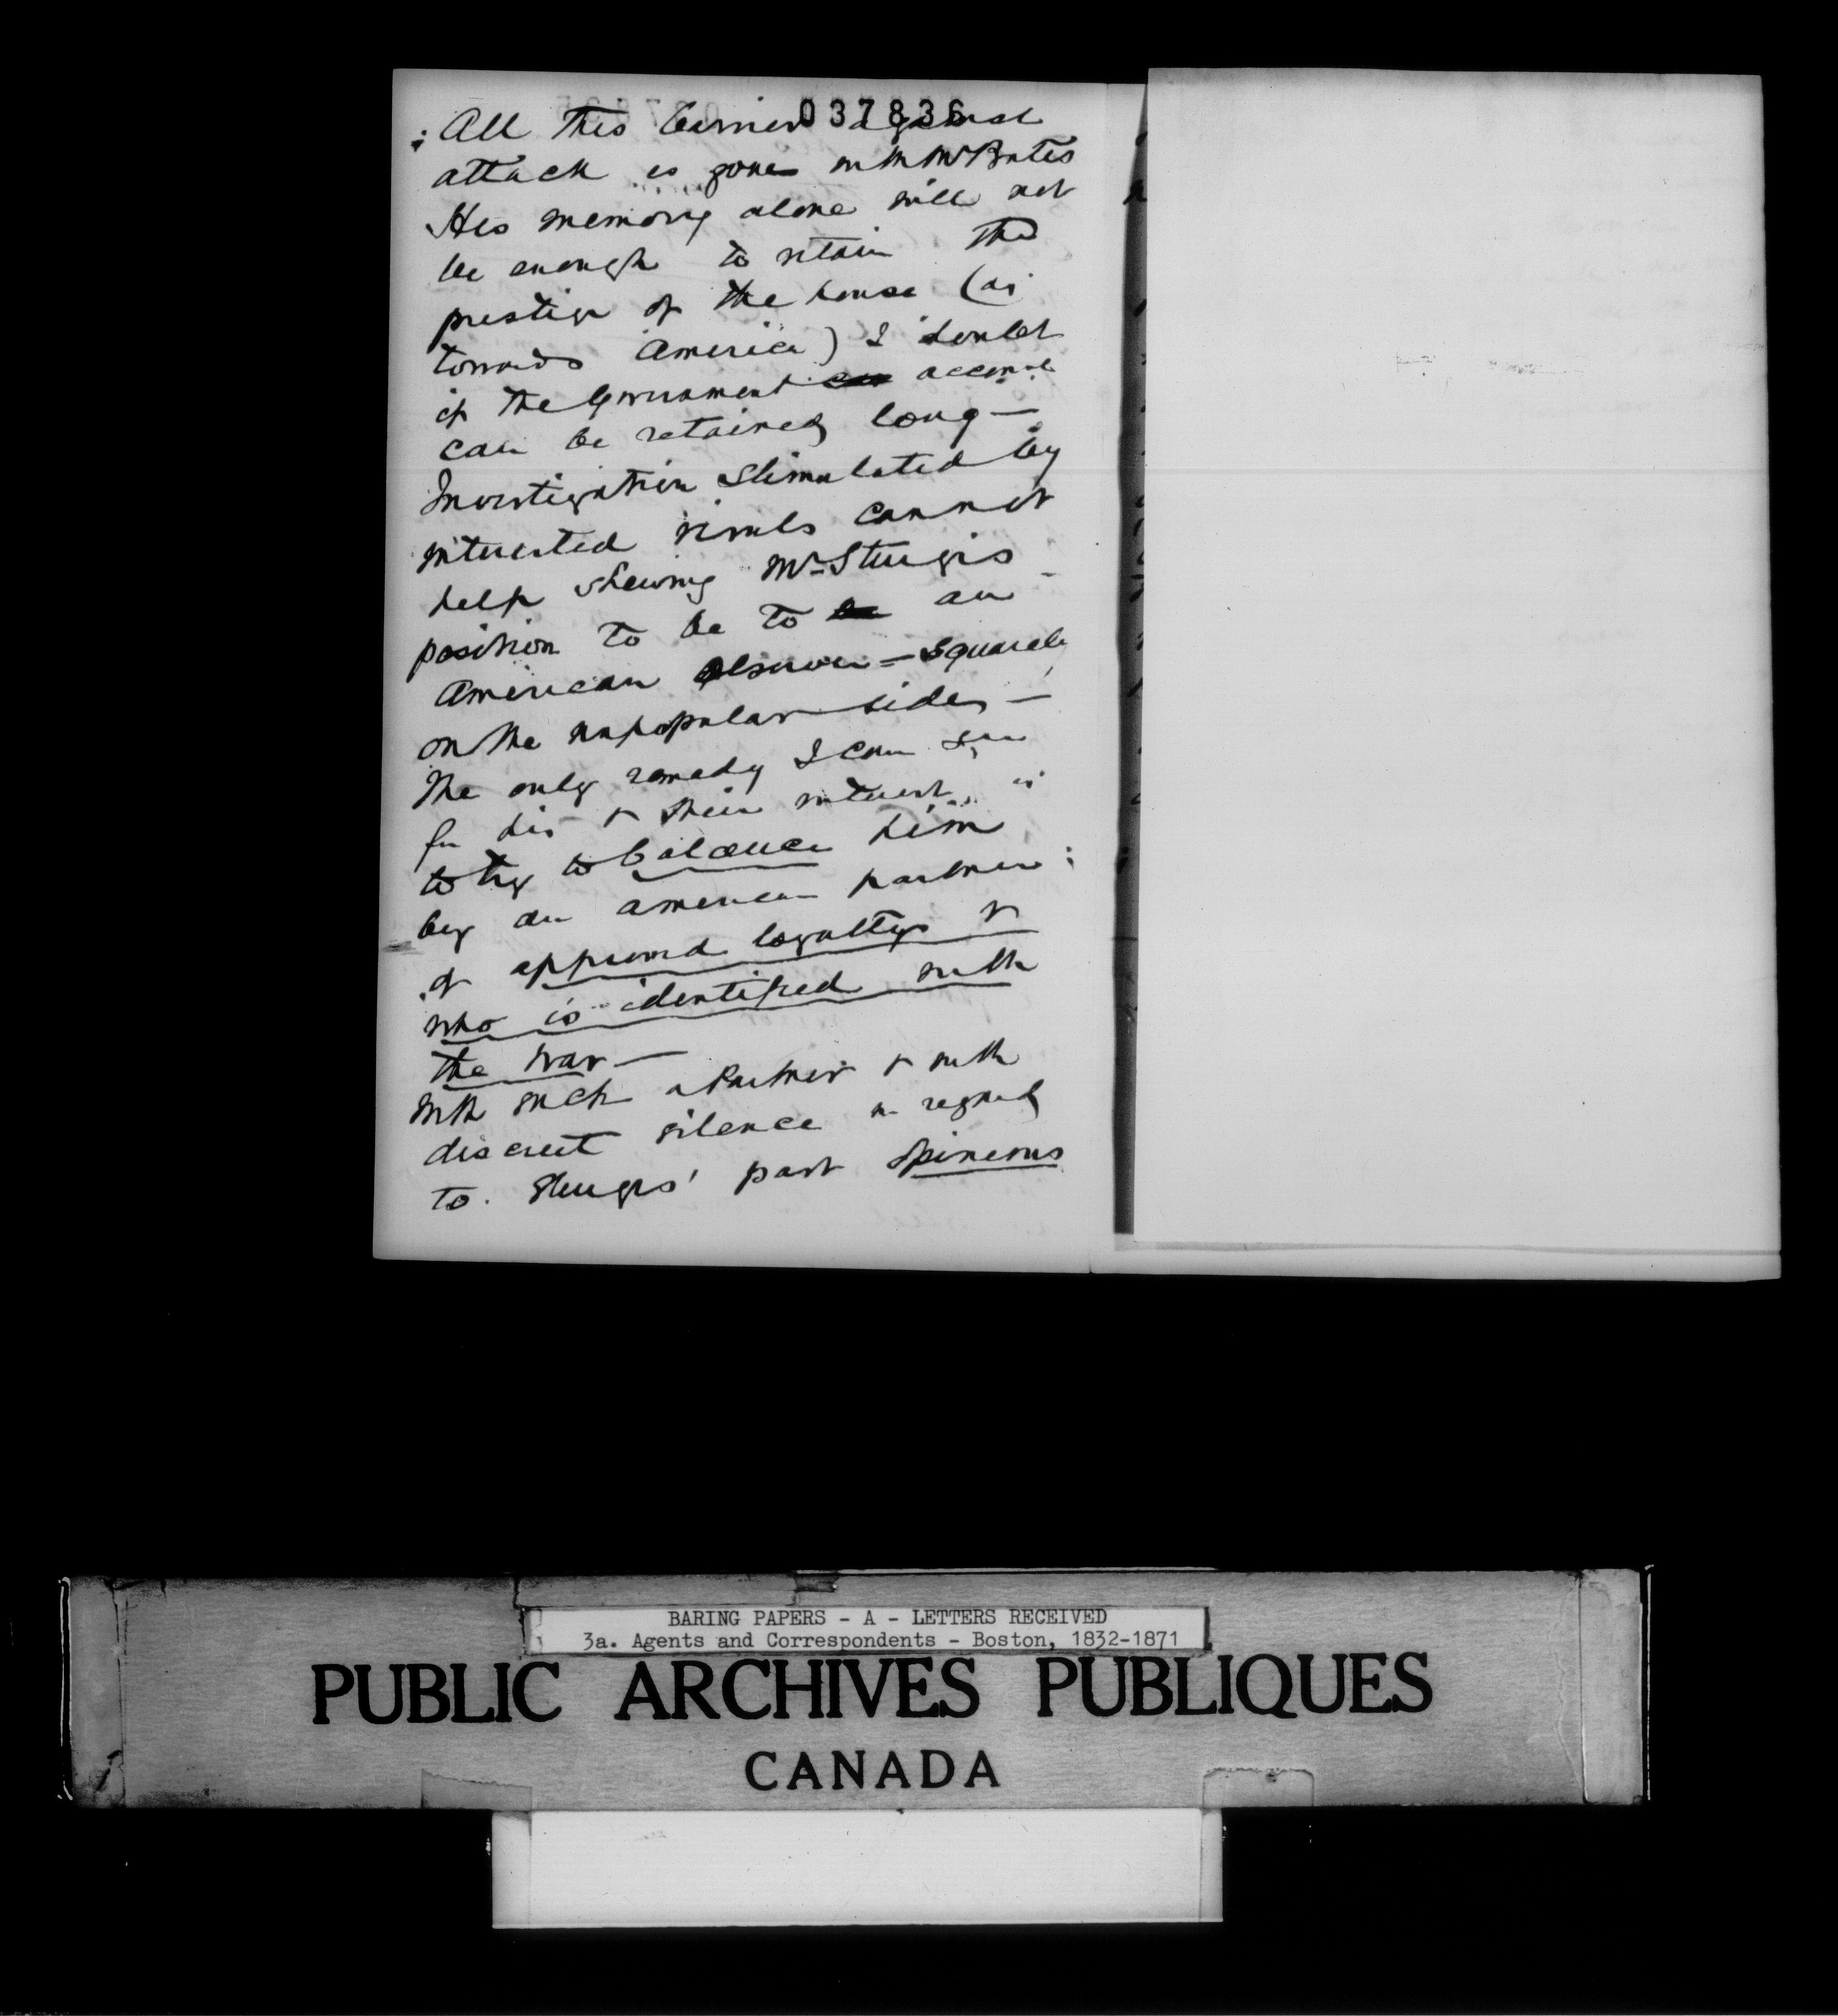 037836
: All this barrier against
attack is gone with Mr Bates
His memory alone will not
be enough to retain the
prestige of the house (as
towards America) I doubt
if the Government account
can be retained long —
Investigation stimulated by
interested rivals cannot
help shewing Mr Sturgis
position to be to an
American observer = squarely
on the unpopular side, —
The only remedy I can see
for his & their interest, is
to try to balance him
by an American partner ;
of approved loyalty &
who is identified with
the war —
With such a Partner & with
discreet silence in regard
to Sturgis' past opinions
BARING PAPERS - A - LETTERS RECEIVED
3a. Agents and Correspondents - Boston, 1832-1871
PUBLIC ARCHIVES PUBLIQUES
CANADA